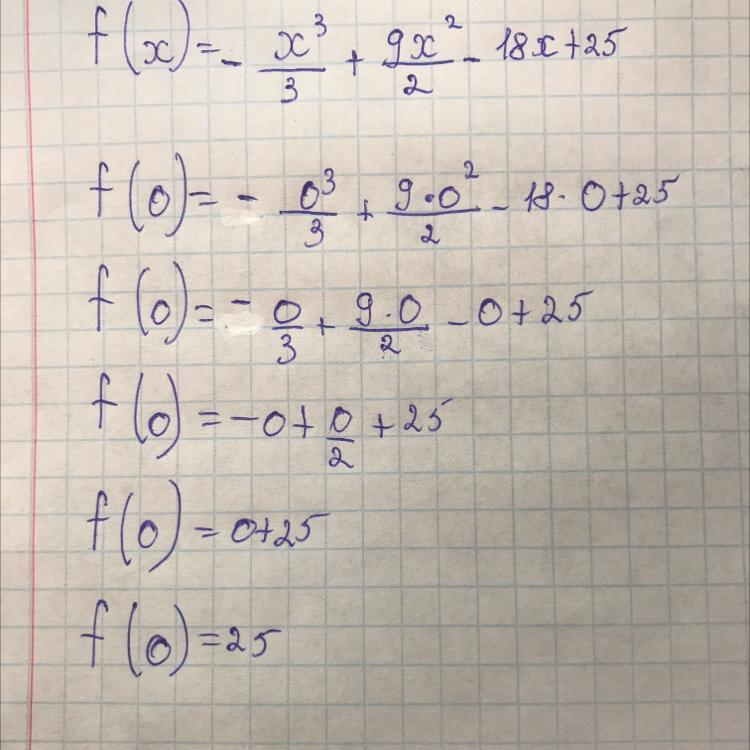 f(x)=-x³/3+9x²/2-18x+25
f(0)=-0³/3+9·0²/2-18·0+25
f(0)=-0/3+9·0/2-0+25
f(0)=-0+0/2+25
f(0)=0+25
f(0)=25